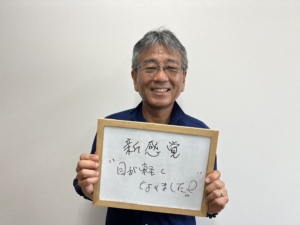 新感覚
"目が軽く
なりました!!"